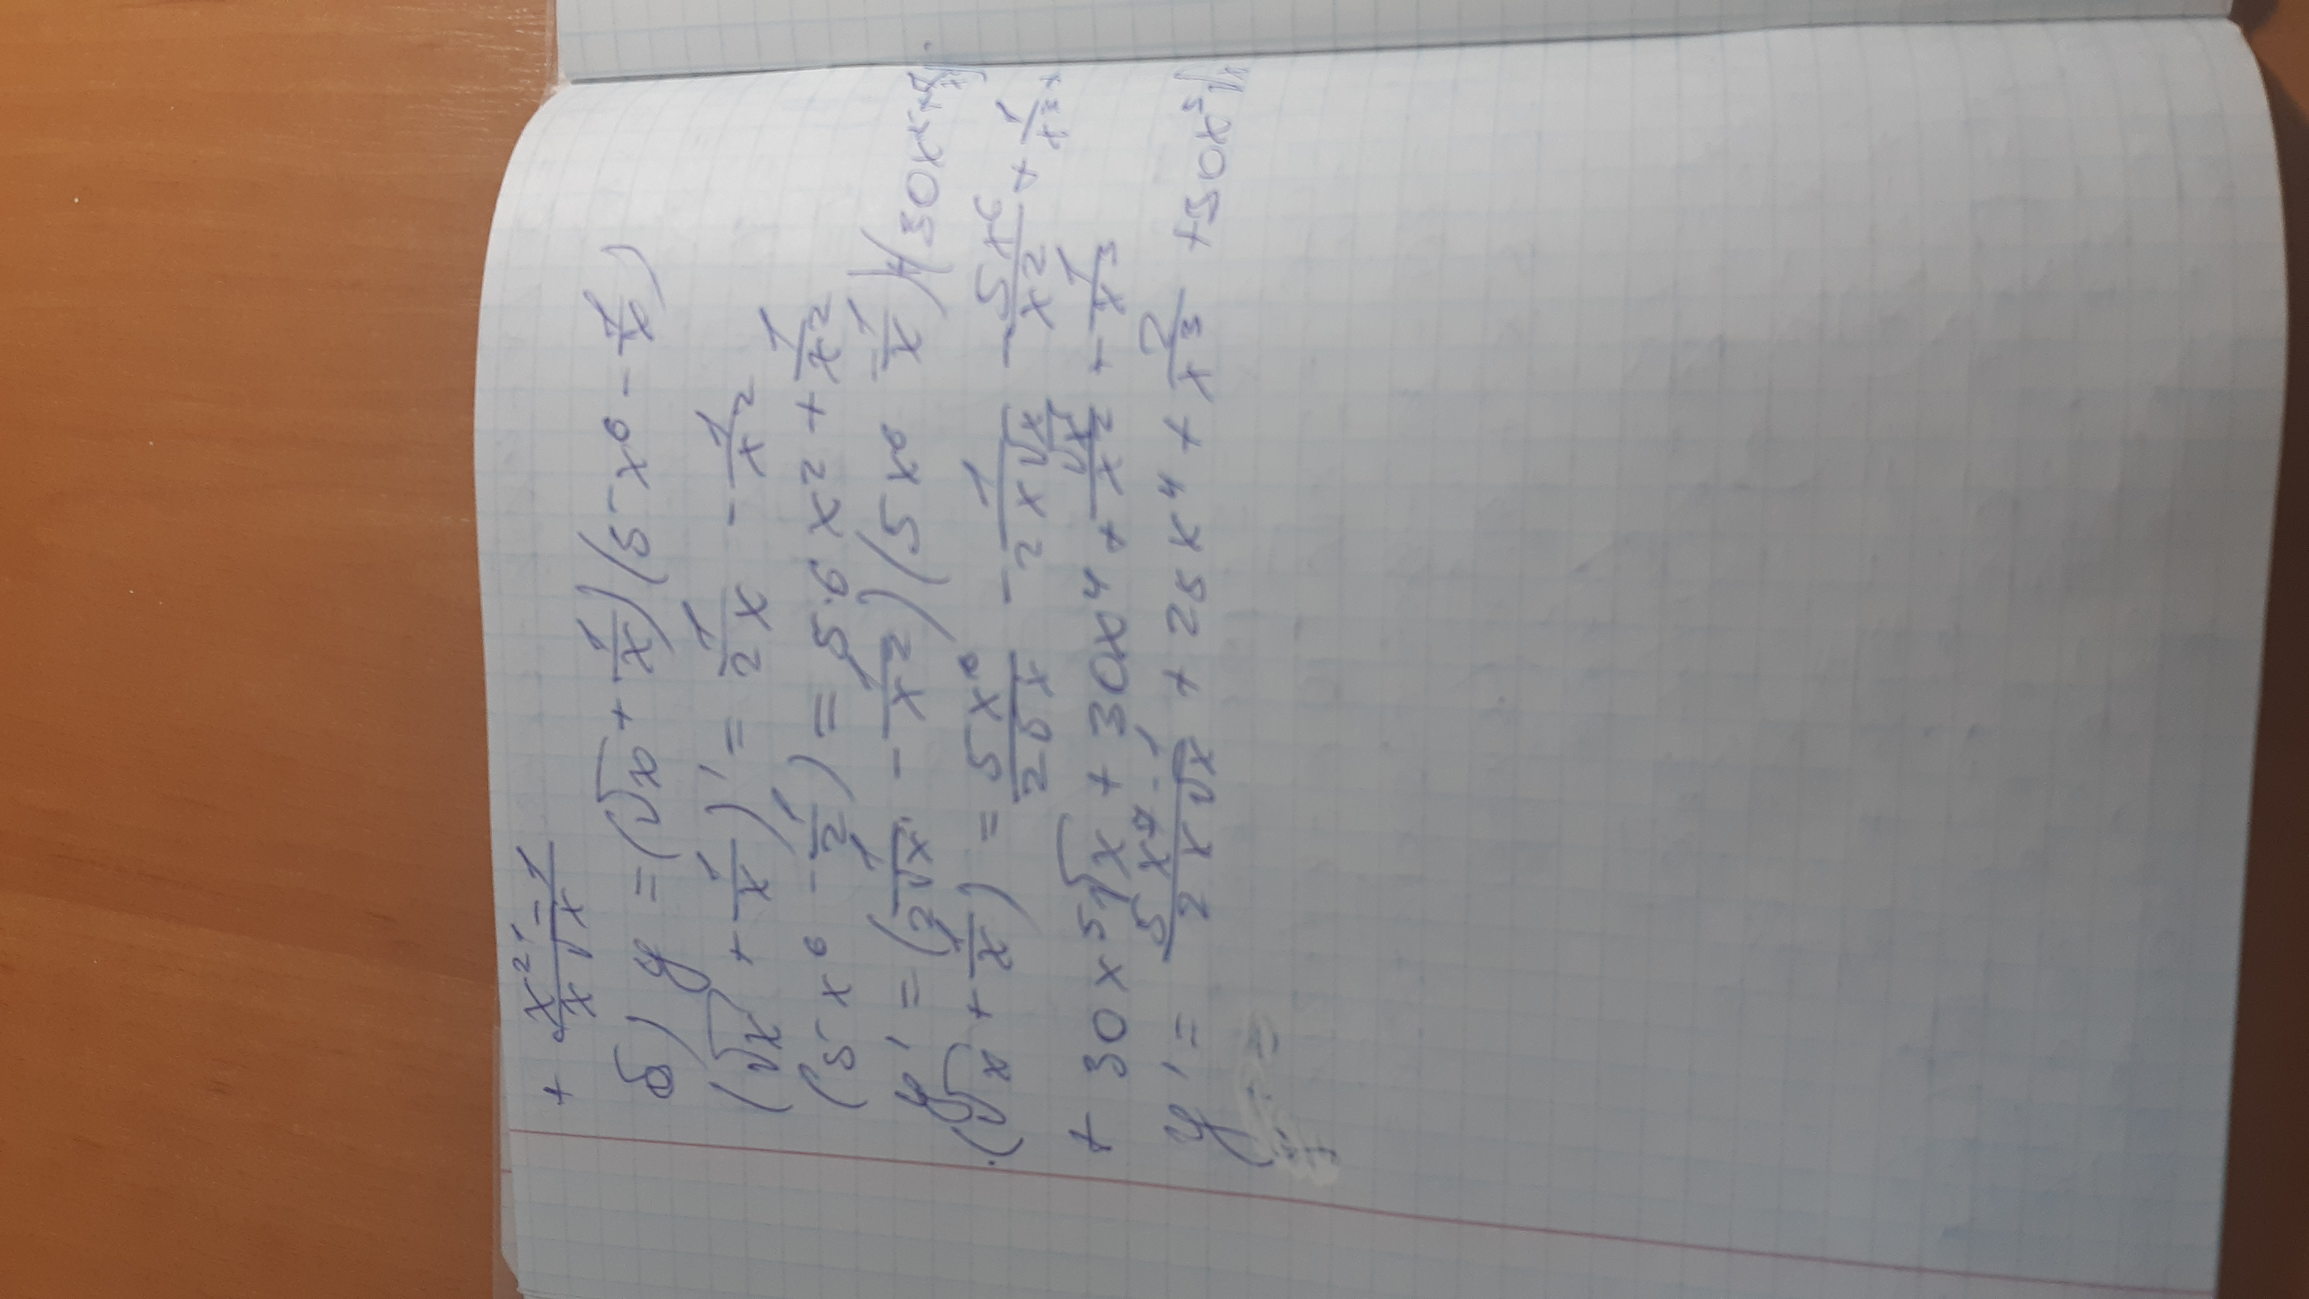 + (x² - 1)/(x√x)
б) y = (√x + 1/x)(5x⁶ - 1/x)
(√x + 1/x)' = 1/2x - 1/x²
(5x⁶ - 1/2) = 5·6x² + 1/x²
y' = (1/2√x - 1/x²)(5x⁶ - 1/x) + (30x⁵ +
·(√x + 1/x) = 5x⁶/2√x - 1/2x√x - 5x⁶/x² + 1/x³ +
+ 30x⁵√x + 30x⁴ + √x/x² + 1/x³
y' = (5x⁷ - 1)/2x√x + 25x⁴ + 2/x³ + 30x⁵√x